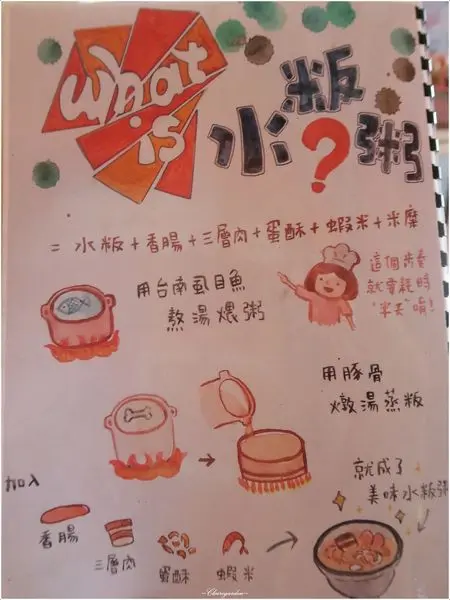 What
is
水粄
?粥
= 水粄+香腸+三層肉+蛋酥+蝦米+米糜
用台南虱目魚
熬湯煨粥
這個步驟
就需耗時
"半天"唷!
用豚骨
燉湯蒸粄
加入
香腸
三層肉
蛋酥
蝦米
就成了
美味水粄粥